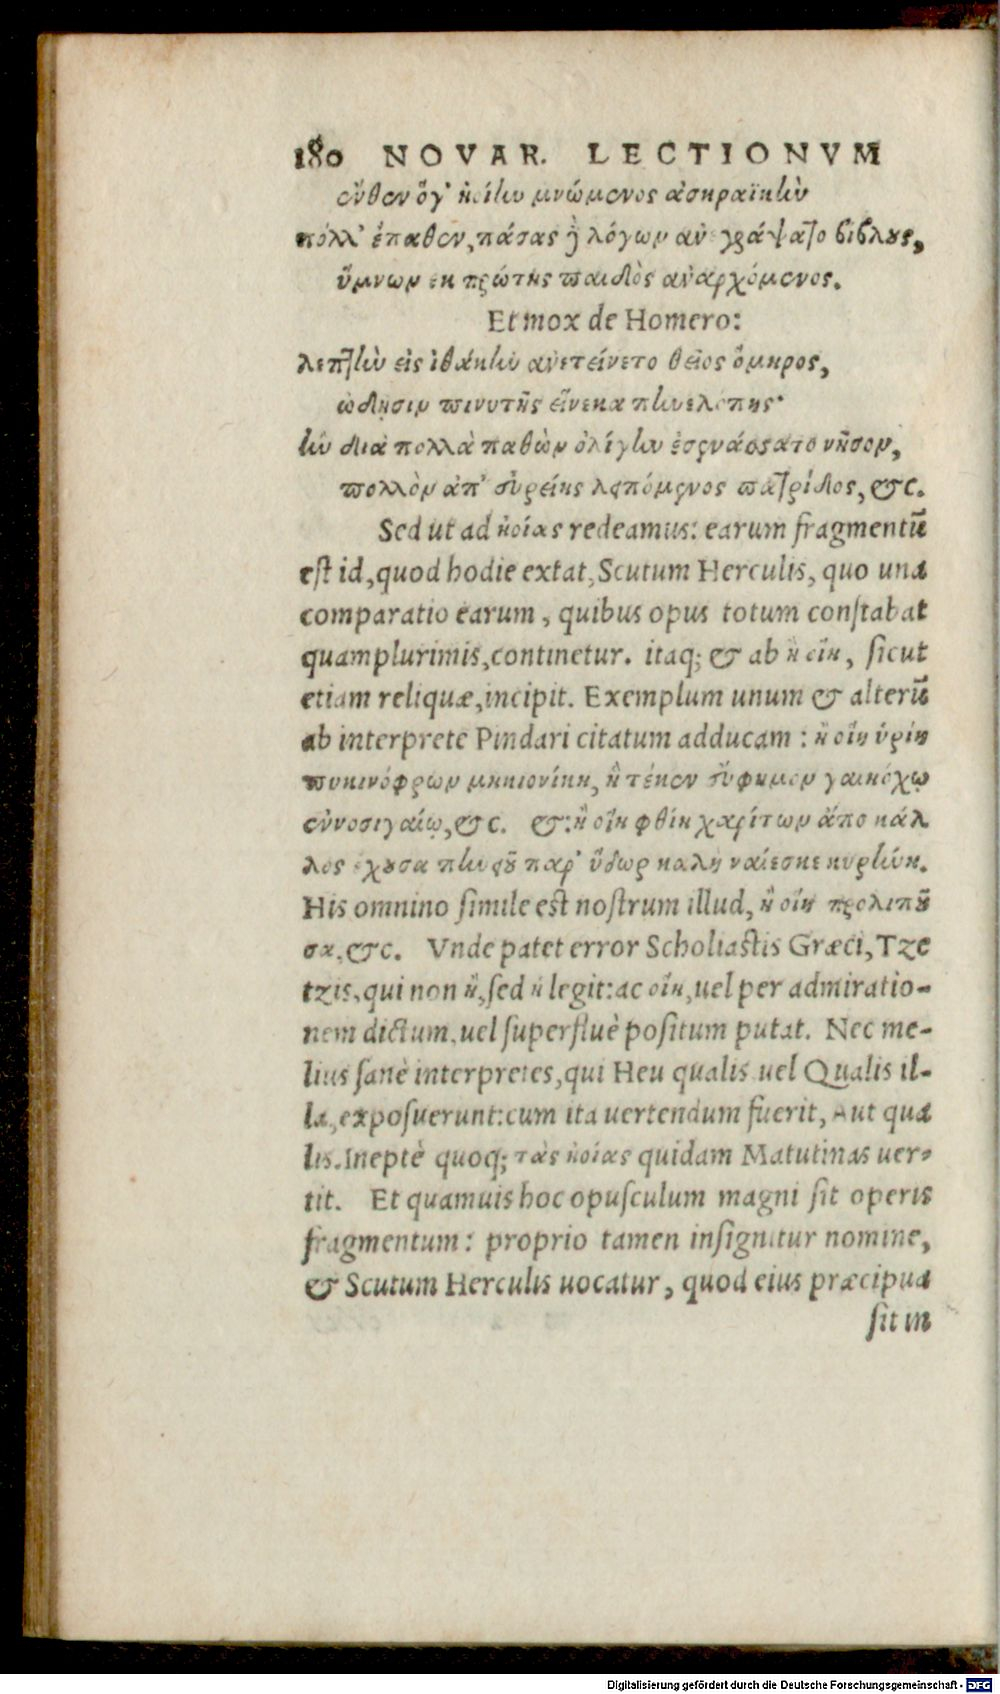 180 NOVAR. LECTIONVM
ἔνθεν ὅγ' ἠοίην μνώμενος ἀσκραϊκὴν
πόλλ' ἔπαθεν, πάσας ϳ λόγων ἀνεγράψατο βίβλους,
ὕμνων ἐκ πρώτης παιδὸς ἀναρχόμενος.
Et mox de Homero:
λεπτὴν εἰς ἰθάκην ἀνετείνετο θεῖος ὅμηρος,
ᾠδῇσιν πινυτῆς εἵνεκα πηνελόπης·
ἣν διὰ πολλὰ παθὼν ὀλίγην ἐσενάσσατο νῆσον,
πολλὸν ἀπ' εὐρείης λειπόμενος πατρίδος, &c.
Sed ut ad ἠοίας redeamus: earum fragmentū
est id, quod hodie extat, Scutum Herculis, quo una
comparatio earum, quibus opus totum constabat
quamplurimis, continetur. itaq; & ab ἢ οἵη, sicut
etiam reliquæ, incipit. Exemplum unum & alterū
ab interprete Pindari citatum adducam: ἢ οἵη ὑρίη
πυκινόφρων μηκιονίκη, ἣ τέκεν εὔφημον γαιηόχῳ
ἐννοσιγαίῳ, &c. &: ἢ οἵη φθίη χαρίτων ἄπο κάλ
λος ἔχουσα πηνειοῦ παρ' ὕδωρ καλὴ ναίεσκε κυρήνη.
His omnino simile est nostrum illud, ἢ οἵη προλιποῦ
σα, &c. Vnde patet error Scholiastis Græci, Tze
tzis, qui non ἢ, sed ἡ legit: ac οἵη, uel per admiratio-
nem dictum, uel superfluè positum putat. Nec me-
lius sanè interpretes, qui Heu qualis uel Qualis il-
la, exposuerunt: cum ita uertendum fuerit, Aut qua
lis. Ineptè quoq; τὰς ἠοίας quidam Matutinas uer-
tit. Et quamuis hoc opusculum magni sit operis
fragmentum: proprio tamen insignitur nomine,
& Scutum Herculis uocatur, quod eius præcipua
sit in
Digitalisierung gefördert durch die Deutsche Forschungsgemeinschaft - DFG